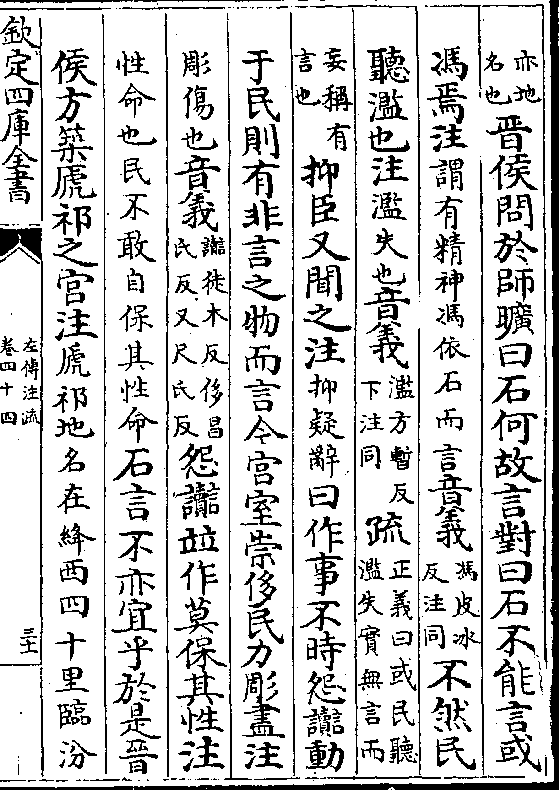 亦地名也晋侯問於師曠曰石何故言對曰石不能言或
馮焉注謂有精神馮依石而言音義馮皮冰反注同不然民
聽濫也注濫失也音義濫方暫反下注同疏正義曰或民聽濫失實無言而
妄稱有言也抑臣又聞之注抑疑辭曰作事不時怨讟動
于民則有非言之物而言今宮室崇侈民力彫盡注
彫傷也音義讟徒木反侈昌氏反又尺氏反怨讟竝作莫保其性注
性命也民不敢自保其性命石言不亦宜乎於是晉
侯方築虒祁之宮注虒祁地名在絳西四十里臨汾
欽定四庫全書
左傳注疏
卷四十四